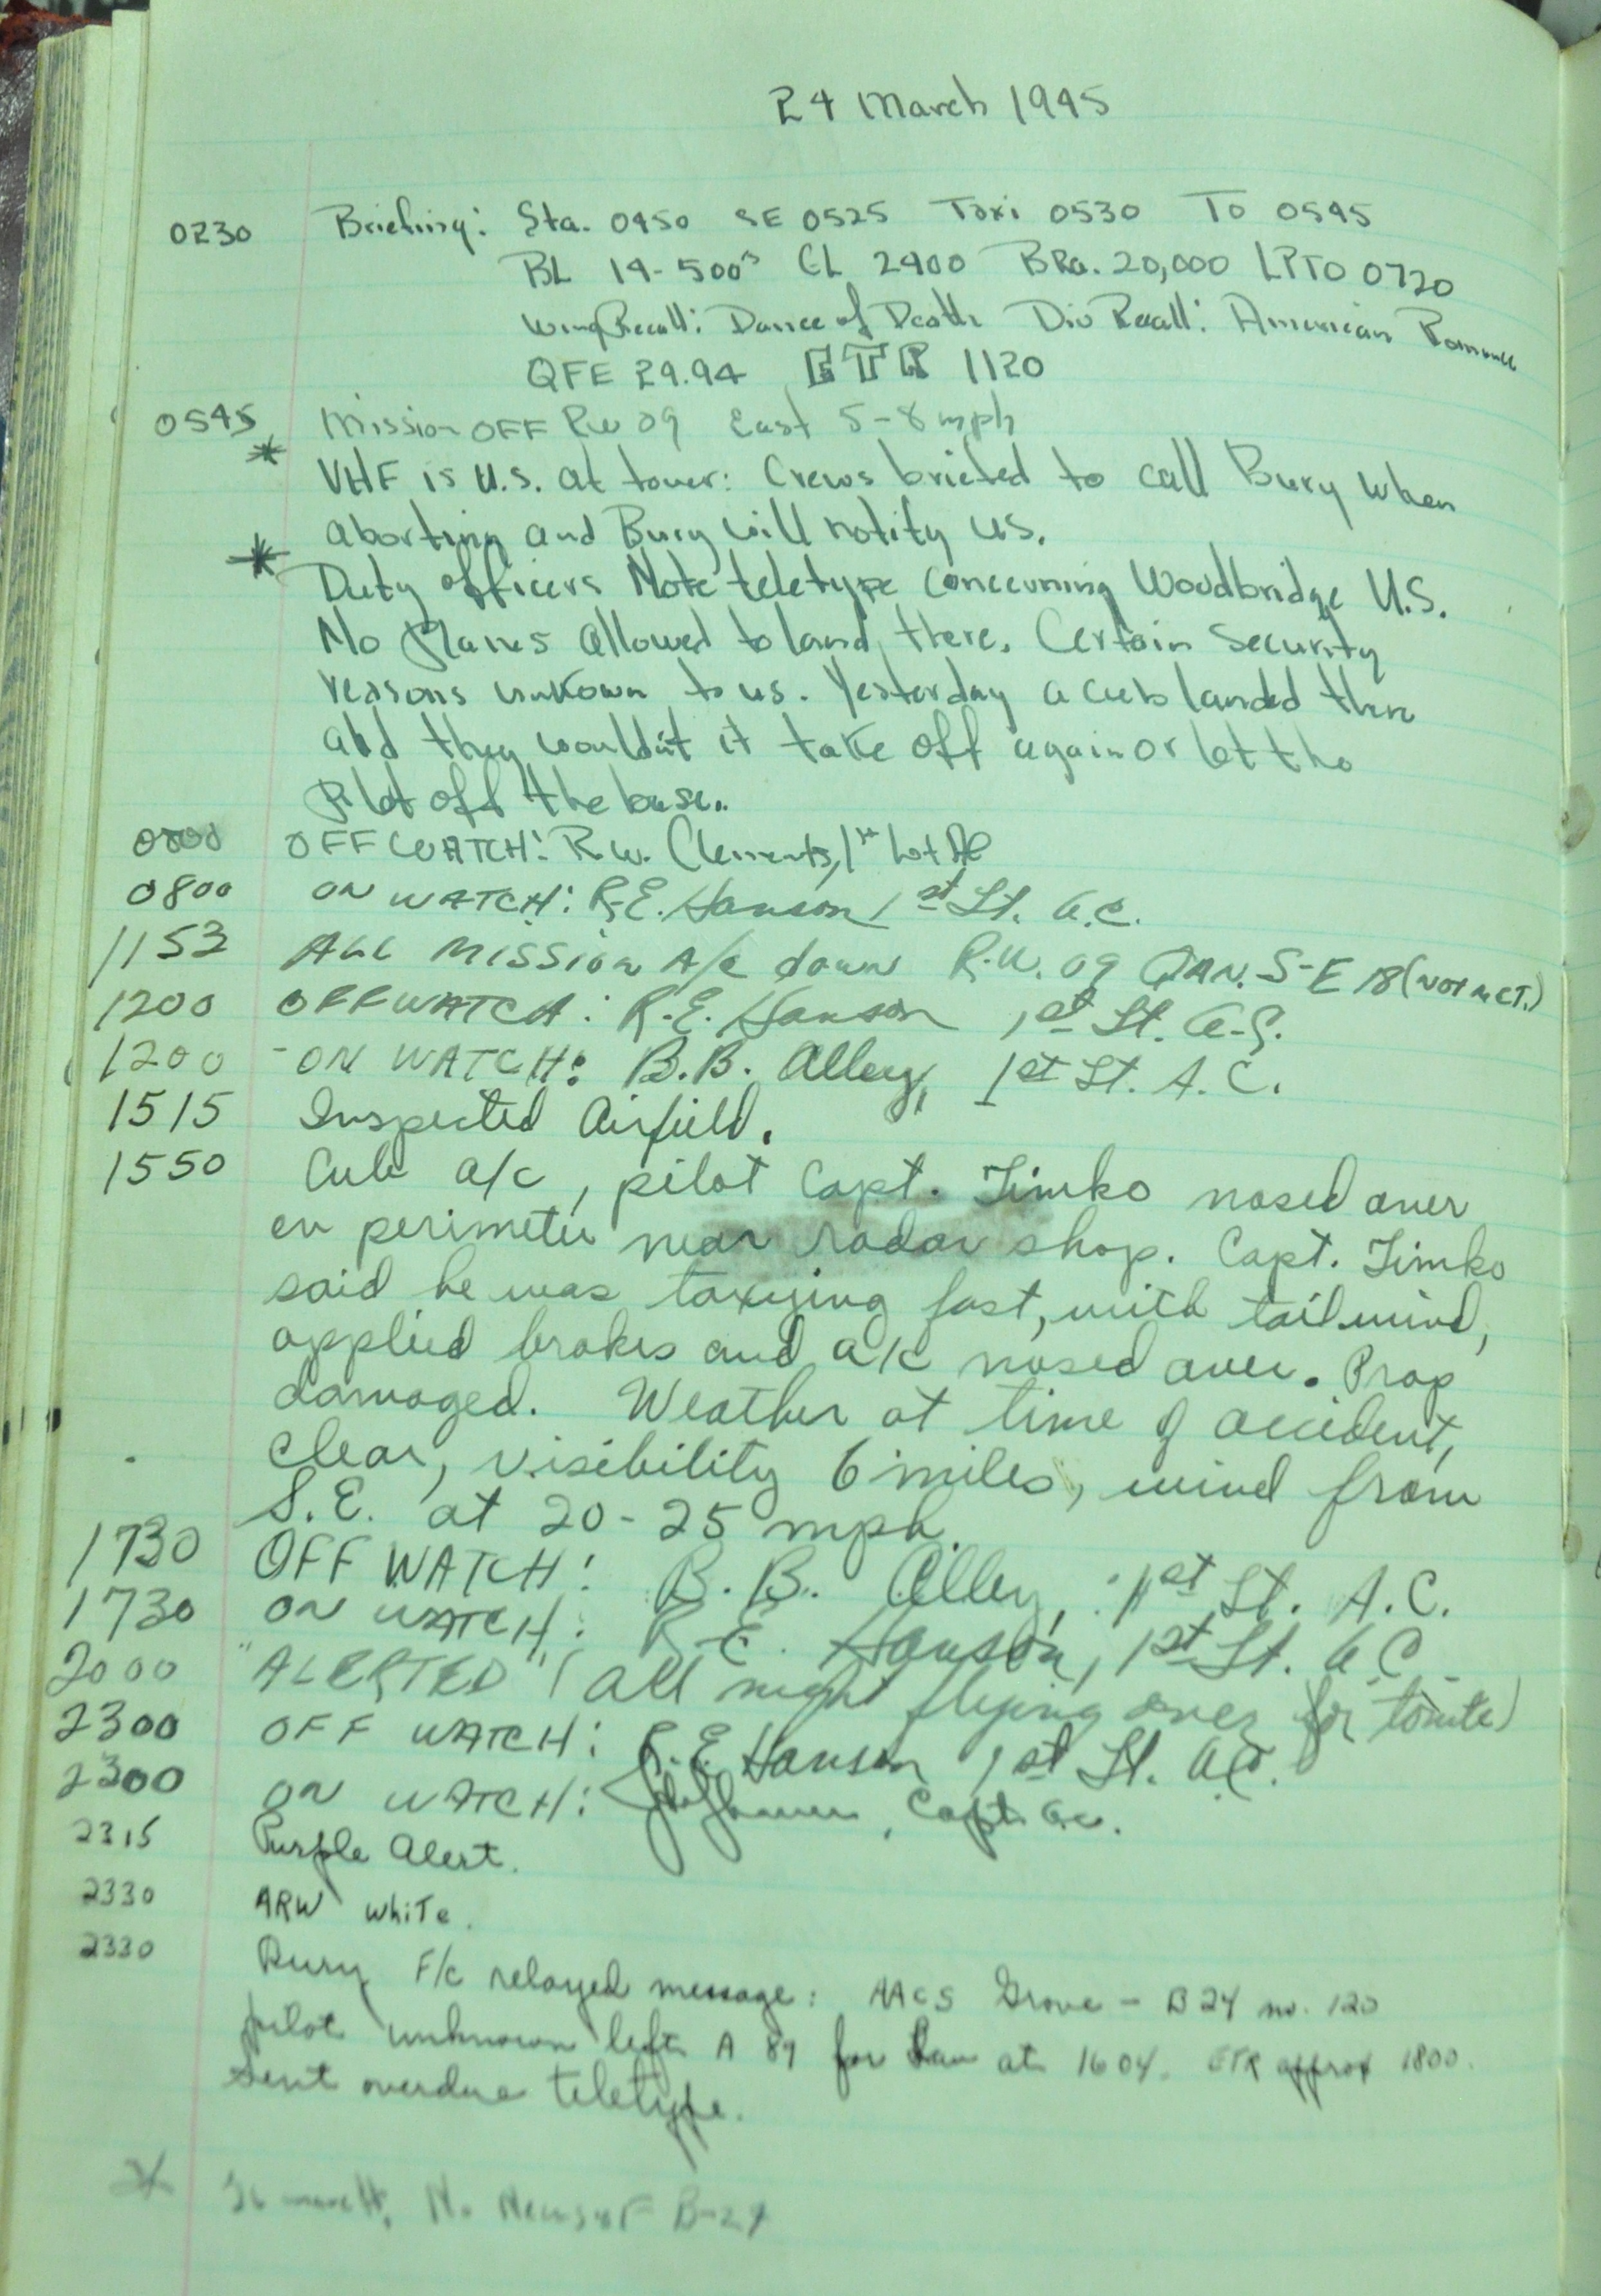 24 March 1945
0230 Briefing: Sta. 0450 SE 0525 Taxi 0530 To 0545
BL 14-500's CL 2400 BRa. 20,000 LPTO 0720
Wing Recall: Dance of Death Div Recall: American
QFE 29.94 ETR 1120
0545 Mission OFF RW 09 East 5-8 mph
* VHF is U.S. at tower: Crews briefed to call Bury when
aborting and Bury will notify us.
* Duty officers Note teletype concerning Woodbridge U.S.
No Planes allowed to land there. Certain Security
reasons unkown to us. Yesterday a cub landed there
and they wouldn't it take off again or let the
Pilot off the base..
0800 OFF WATCH: R.W. Clements, 1st Lt AC
0800 ON WATCH: R.E. Hanson 1st Lt. A.C.
1153 ALL MISSION A/C down R.W. 09 QAN. S-E 18 (NOT MET.)
1200 OFF WATCH: R.E. Hanson 1st Lt. A.C.
1200 - ON WATCH: B.B. Alley, 1st Lt. A.C.
1515 Inspected Airfield.
1550 Cub a/c, pilot Capt. Timko nosed over
on perimeter near radar shop. Capt. Timko
said he was taxying fast, with tailwind,
applied brakes and a/c nosed over. Prop
damaged. Weather at time of accident,
clear, visibility 6 miles, wind from
S.E. at 20-25 mph.
1730 OFF WATCH: B.B. Alley, 1st Lt. A.C.
1730 ON WATCH: R.E. Hanson, 1st Lt. A.C.
2000 "ALERTED" (all night flying over for tonite)
2300 OFF WATCH: R.E. Hanson 1st Lt. A.C.
2300 ON WATCH: Capt. A.C.
2315 Purple Alert.
2330 ARW white.
2330 Bury F/c relayed message: AACS Grove - B24 no. 120
pilot unknown left A 89 for at 1604. ETR approx 1800.
Sent overdue teletype.
* 26 march, No News of B-24